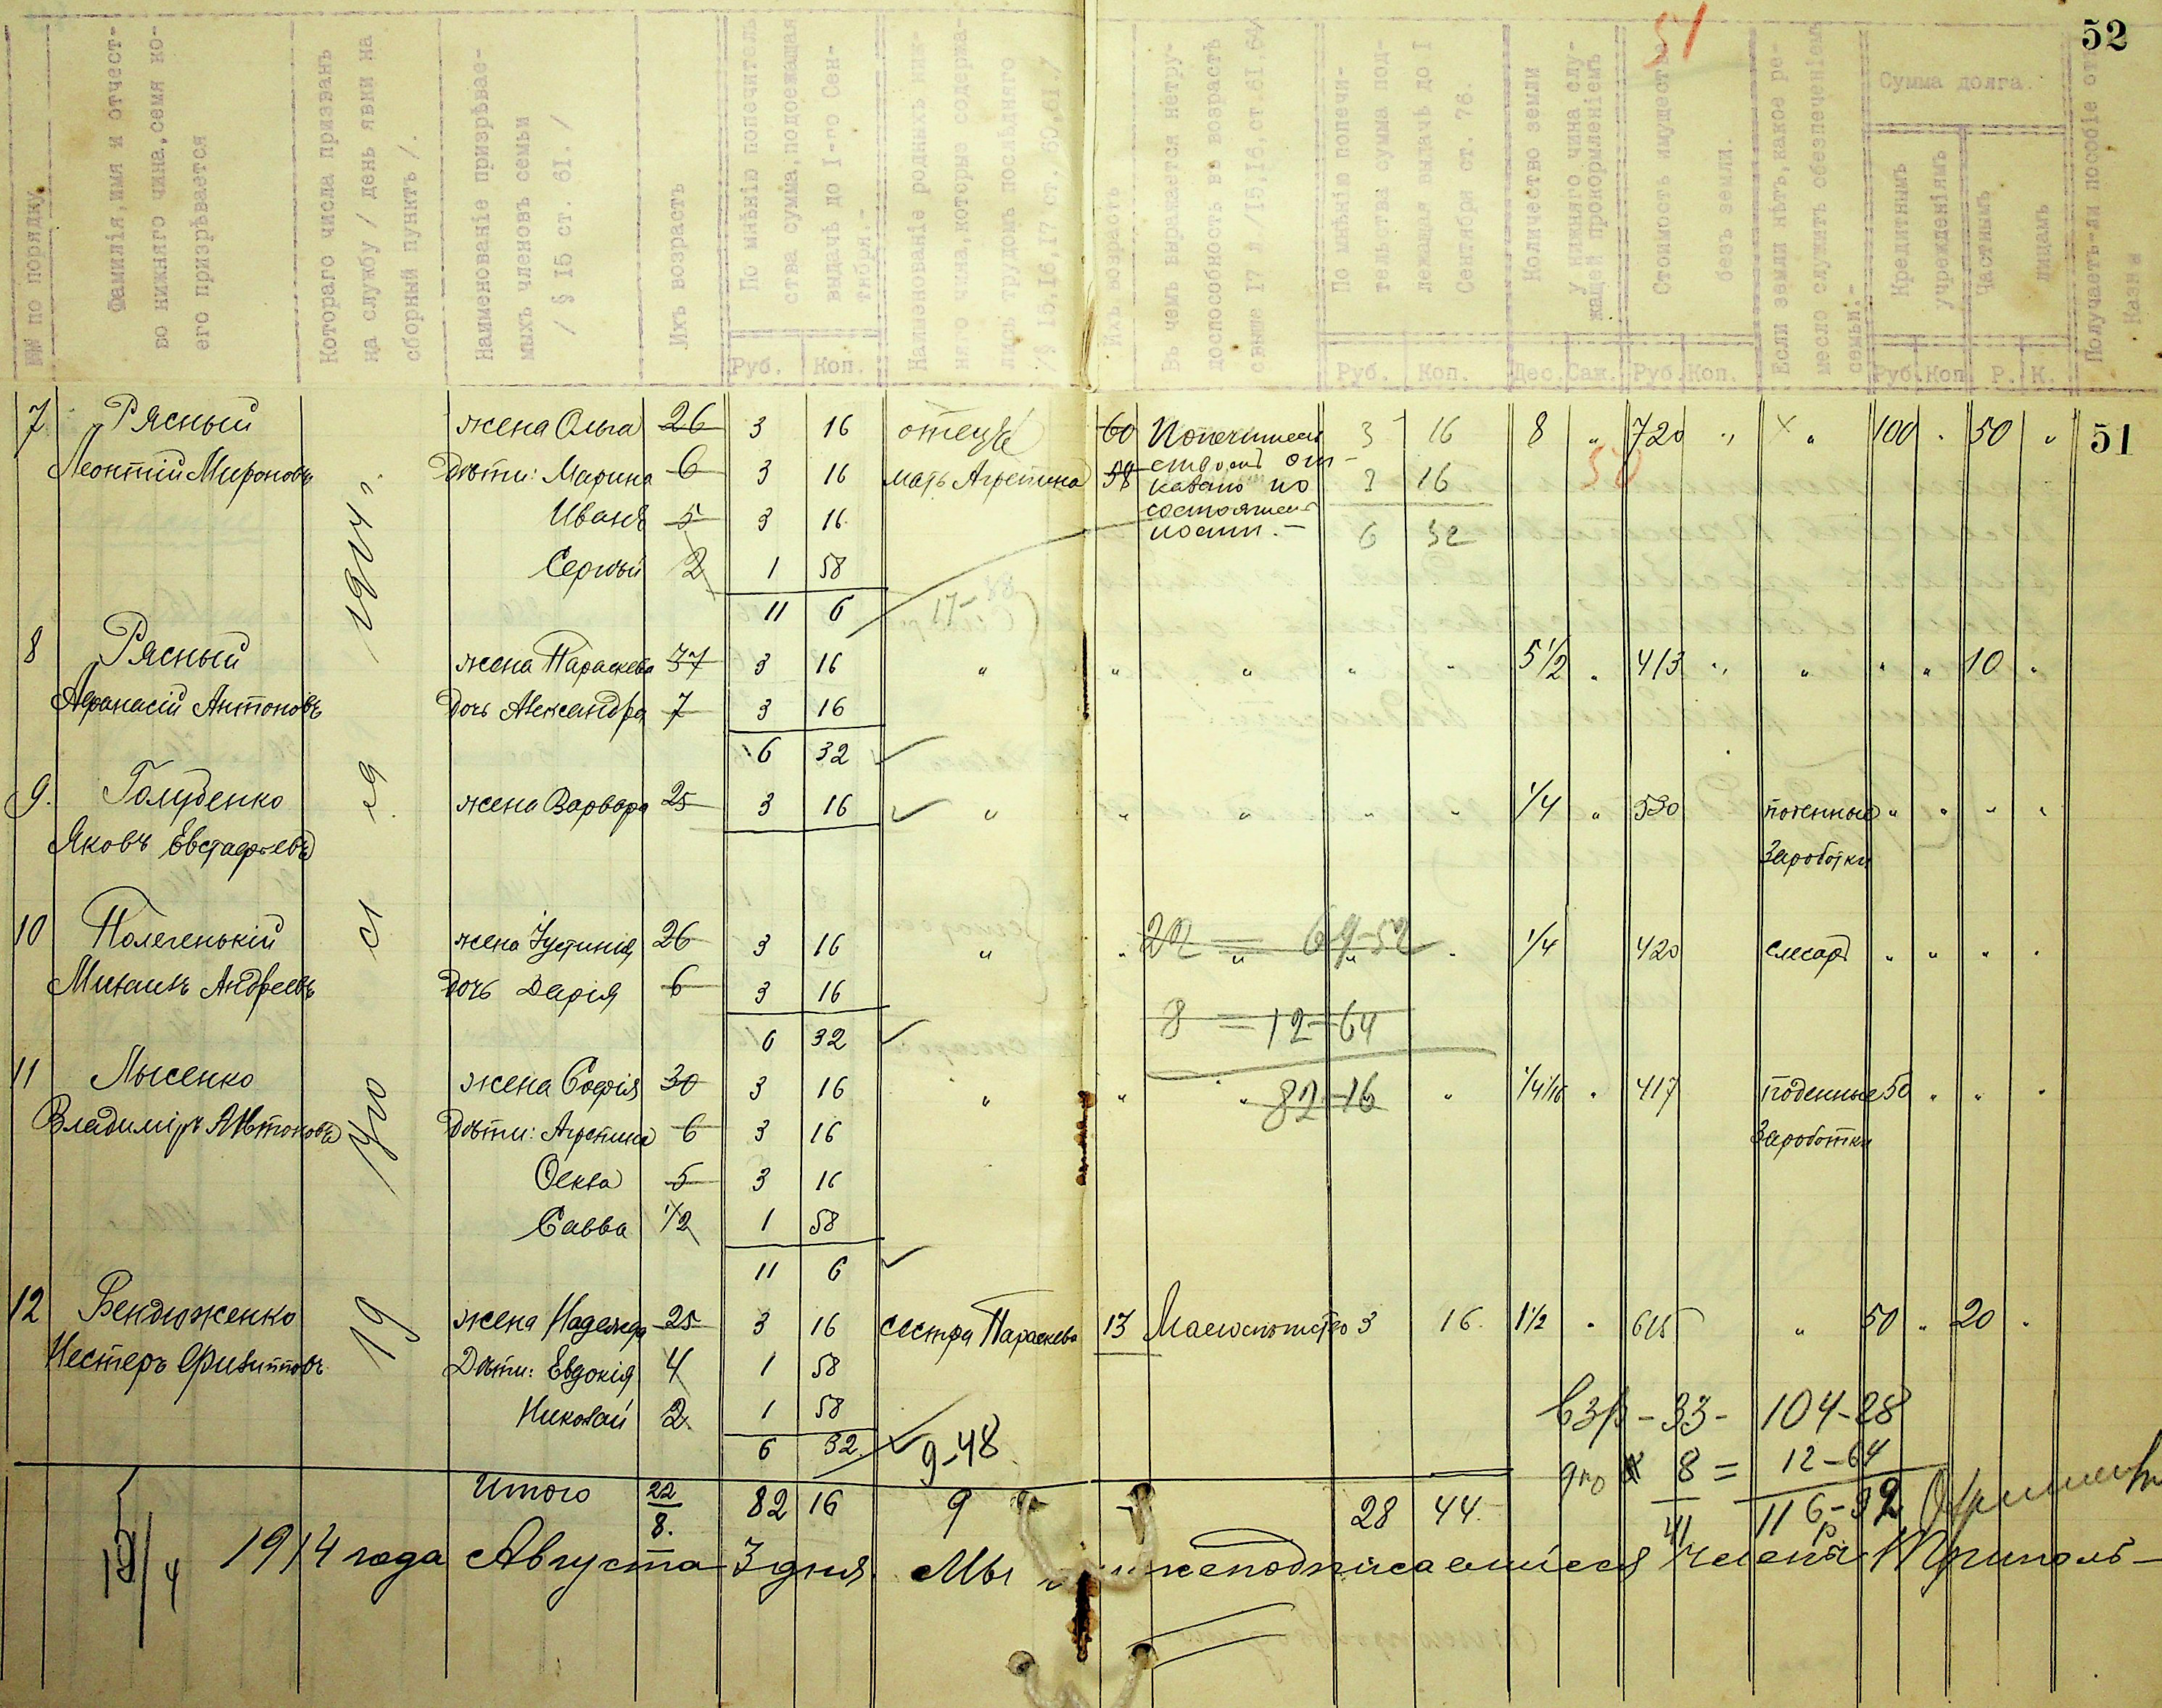 52
51
№№ по порядку
Фамилія, имя и отчест-
во нижняго чина, семя ко-
его призрѣвается
Котораго числа призванъ
на службу / день явки на
сборный пунктъ /.
Наименованіе призрѣвае-
мыхъ членовъ семьи
/ § 15 ст. 61. /
Ихъ возрастъ
По мнѣнію попечитель
ства сумма, подлежащая
выдачѣ до I-го Сен-
тября.-
Руб. Коп.
Наименованіе родныхъ ниж-
няго чина, которые содержа-
лись трудомъ послѣдняго
/§ 15,16,17 ст. 60,61./
Ихъ возрастъ
Въ чемъ выражается нетру-
доспособность въ возрастѣ
свыше 17 л./15,16,ст.61,64/
По мнѣнію попечи-
тельства сумма под-
лежащая выдачѣ до I
Сентября ст. 76.
Руб. Коп.
Количество земли
у нижняго чина слу-
жащей прокормленіемъ
Дес. Саж.
Стоимость имуществъ
безъ земли.
Руб. Коп.
Если земли нѣтъ, какое ре-
месло служитъ обезпеченіемъ
семьи.-
Сумма долга.
Кредитнымъ
учрежденіямъ
Частнымъ
лицамъ
Руб. Коп. Р. К.
Получаетъ-ли пособіе отъ
Казны
7 Рясный жена Ольга 26 3 16 отецъ 60 Попечитель 3 16 8 " 720 " " 100 " 50 " 51
Леонтій Мироновъ Дѣти: Марина 6 3 16 мать Агрепина 58 ствомъ от- 3 16 50
казано по
Иванъ 5 3 16 состоятель
ности.- 6 32
Сергѣй 2 1 58
11 6 17-
8 Рясный жена Параскева 37 3 16 " " " " " 5 1/2 " 413 " " " " 10 "
Афанасій Антоновъ дочь Александра 7 3 16
6 32
9. Голубенко жена Варвара 25 3 16 " " " " " 1/4 " 530 поденные " " " "
Яковъ Евстафіевъ Заработки
10 Полегенькій жена Іустинія 26 3 16 " " 22 = 69-52 " 1/4 420 слесарь " " " "
Михаилъ Андреевъ дочь Дарія 6 3 16
8 = 12-64
6 32
11 Лысенко жена Софія 30 3 16 " " " 82-16 " 1/4 1/16 " 417 поденные 50 " " "
Владиміръ Антоновъ Дѣти: Агрепина 6 3 16 Заработки
Оекла 5 3 16
Савва 1/2 1 58
11 6
19 июля 1914 г.
12 Бендюженко жена Надежда 25 3 16 сестра Параскева 13 Малолѣтство 3 16 1 1/2 " 615 " 50 " 20 "
Нестеръ Филипповъ Дѣти: Евдокія 4 1 58
Николай 2 1 58
6 32 9-48
Взр - 33 - 104-28
8 = 12-64
Итого 22 82 16 9 28 44 41 116-92
8.
1914 года Августа 3 дня Мы нижеподписавшіеся Члены Триполь-